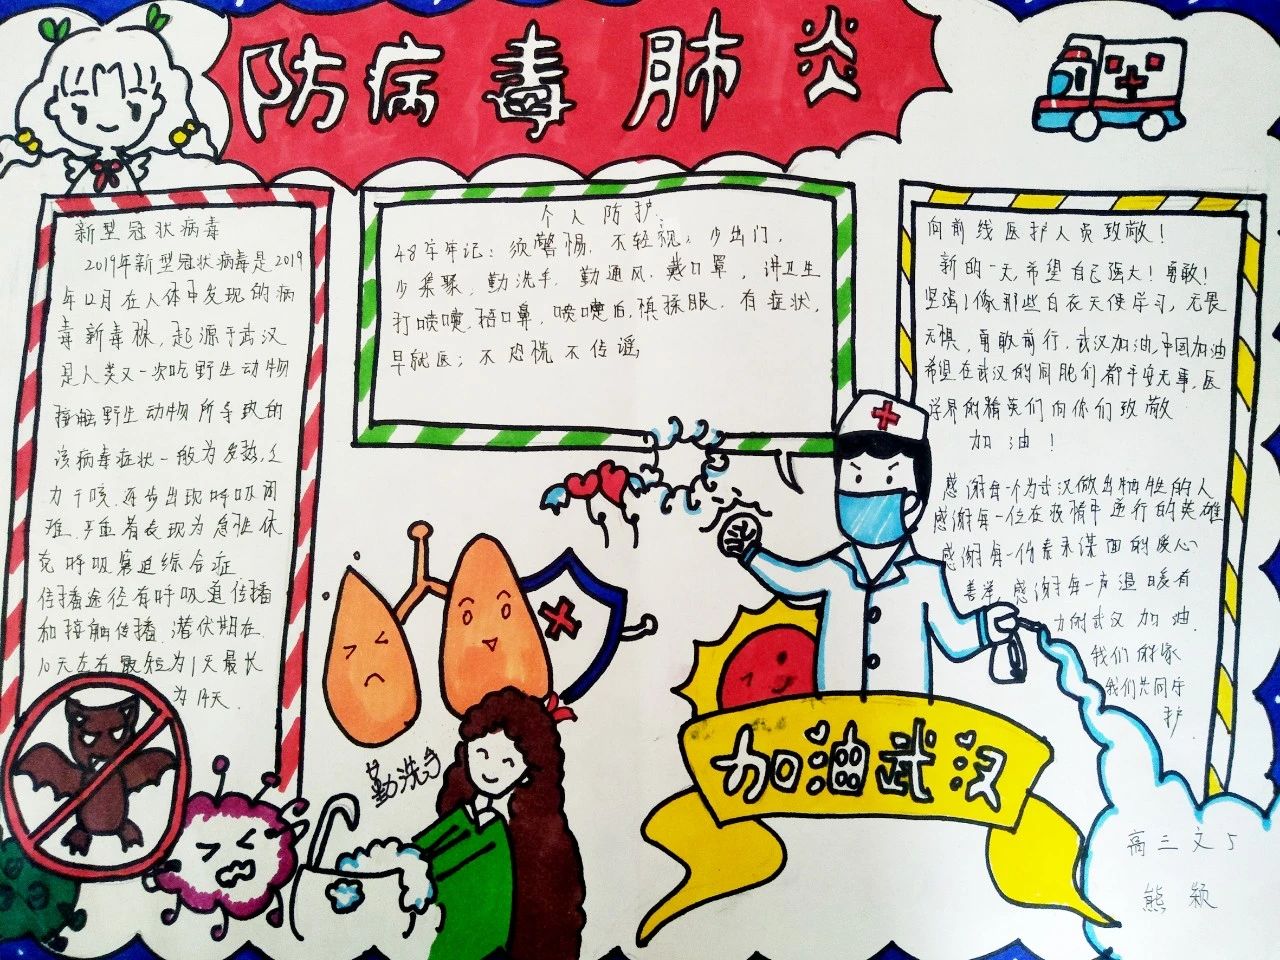 防病毒肺炎
新型冠状病毒
2019年新型冠状病毒是2019
年12月在人体中发现的病
毒新毒株，起源于武汉
是人类又一次吃野生动物
接触野生动物所导致的
该病毒症状一般为发热，乏
力干咳.逐步出现呼吸困
难.严重着表现为急性休
克呼吸窘迫综合症
传播途径有呼吸道传播
和接触传播.潜伏期在
10天左右最短为1天最长
为14天.
个人防护:
48字牢记：须警惕.不轻视；少出门，
少集聚，勤洗手.勤通风.戴口罩，讲卫生
打喷嚏.捂口鼻，喷嚏后,慎揉眼.有症状，
早就医；不恐慌不传谣
向前线医护人员致敬！
新的一天,希望自己强大！勇敢！
坚强！像那些白衣天使学习，无畏
无惧，勇敢前行.武汉加油,中国加油
希望在武汉的同胞们都平安无事，医
学界的精英们向你们致敬
加油！
感谢每一个为武汉做出牺牲的人
感谢每一位在疫情中逆行的英雄
感谢每一份素未谋面的爱心
善举，感谢每一声温暖有
力的武汉加油.
我们的家
我们共同守
护.
勤洗手
加油武汉
高三文5
熊颖